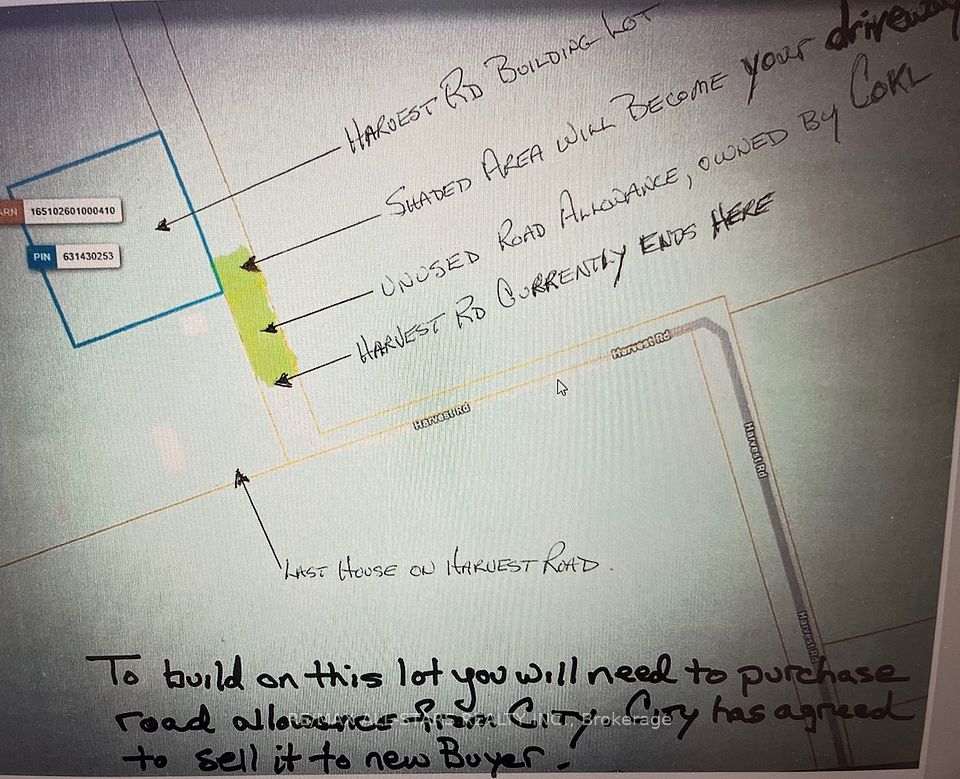 HARVEST RD BUILDING LOT
SHADED AREA WILL BECOME your driveway
UNUSED ROAD ALLOWANCE, OWNED BY COKL
HARVEST RD CURRENTLY ENDS HERE
ARN 165102601000410
PIN 631430253
Harvest Rd
Harvest Rd
Harvest Rd
Harvest Rd
LAST HOUSE ON HARVEST ROAD.
To build on this lot you will need to purchase
road allowance from CITY. City has agreed
to sell it to new Buyer.
REALTY INC., Brokerage